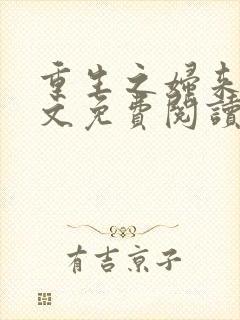 重生之婦來
文免費閱讀
有吉京子